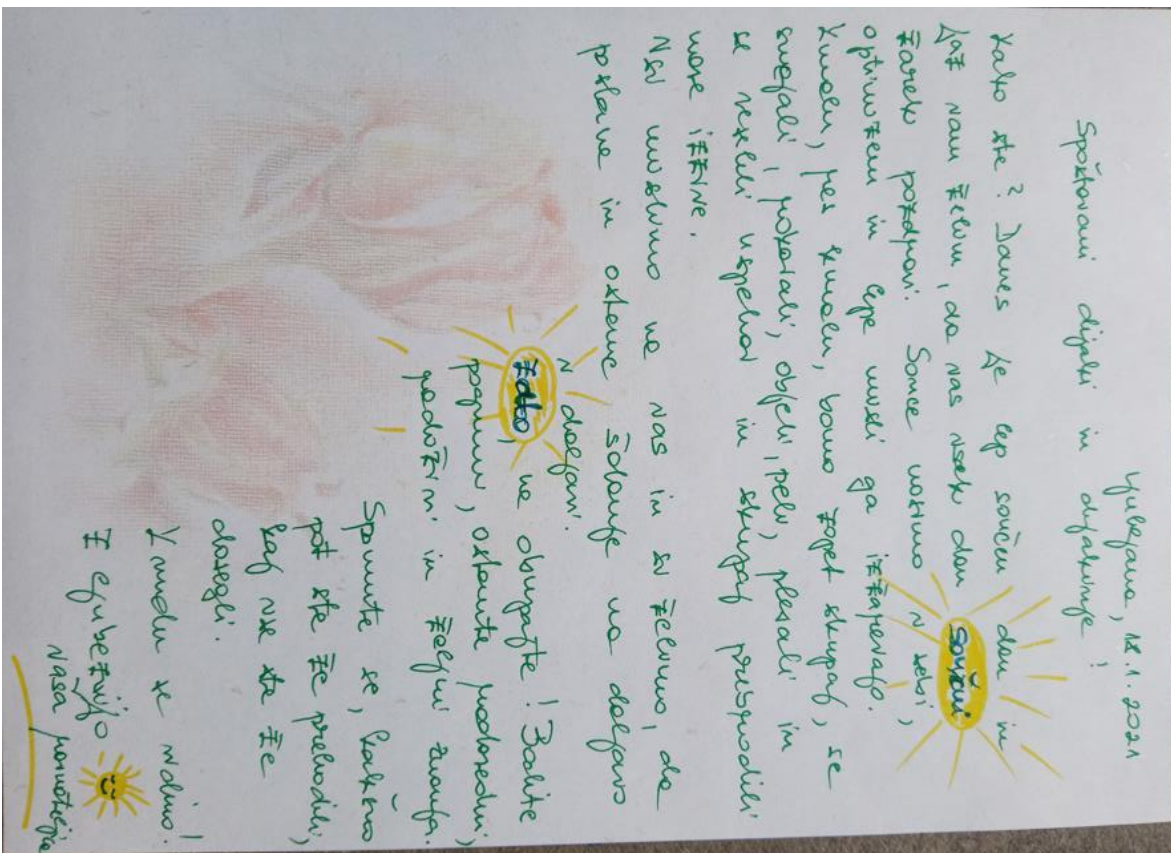 Ljubljana, 18.1.2021
Spoštovani dijaki in dijakinje!
Kako ste? Danes je lep sončen dan in
jaz vam želim, da vas vsak dan sončni
žarek pozdravi. Sonce nosimo v sebi,
optimizem in lepe misli ga izžarevajo.
Kmalu, res kmalu, bomo zopet skupaj, se
smejali, jokali, objeli, peli, plesali in
se veselili uspehov in skupaj prebrodili
nove izzive.
Vsi mislimo na vas in si želimo, da
postane in ostane šolanje na daljavo
v daljavi.
Zato, ne obupajte! Bodite
pogumni, ostanite radovedni,
vedoželjni in željni znanja.
Spomnite se, kakšno
pot ste že prehodili,
kaj vse ste že
dosegli.
V mislih se vidimo!
Z ljubeznijo
Vaša